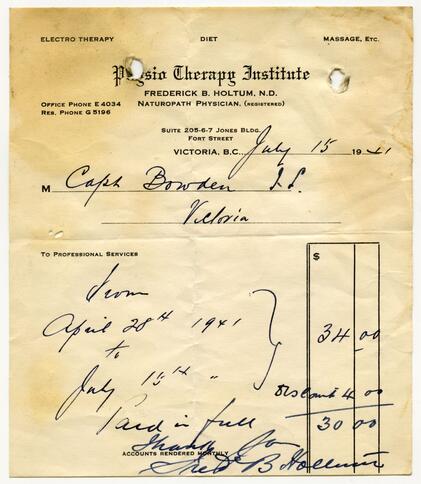 ELECTRO THERAPY DIET MASSAGE, ETC.
Physio Therapy Institute
FREDERICK B. HOLTUM, N.D.
OFFICE PHONE E 4034 NATUROPATH PHYSICIAN, (REGISTERED)
RES. PHONE G 5196
SUITE 205-6-7 JONES BLDG.
FORT STREET
VICTORIA, B.C., July 15 1941
M Capt Bowden
Victoria
TO PROFESSIONAL SERVICES $
From
April 28th 1941 34 00
to
July 15th "
Discount 4 00
Paid in full 30 00
Thank You
ACCOUNTS RENDERED MONTHLY
Fred B Holtum